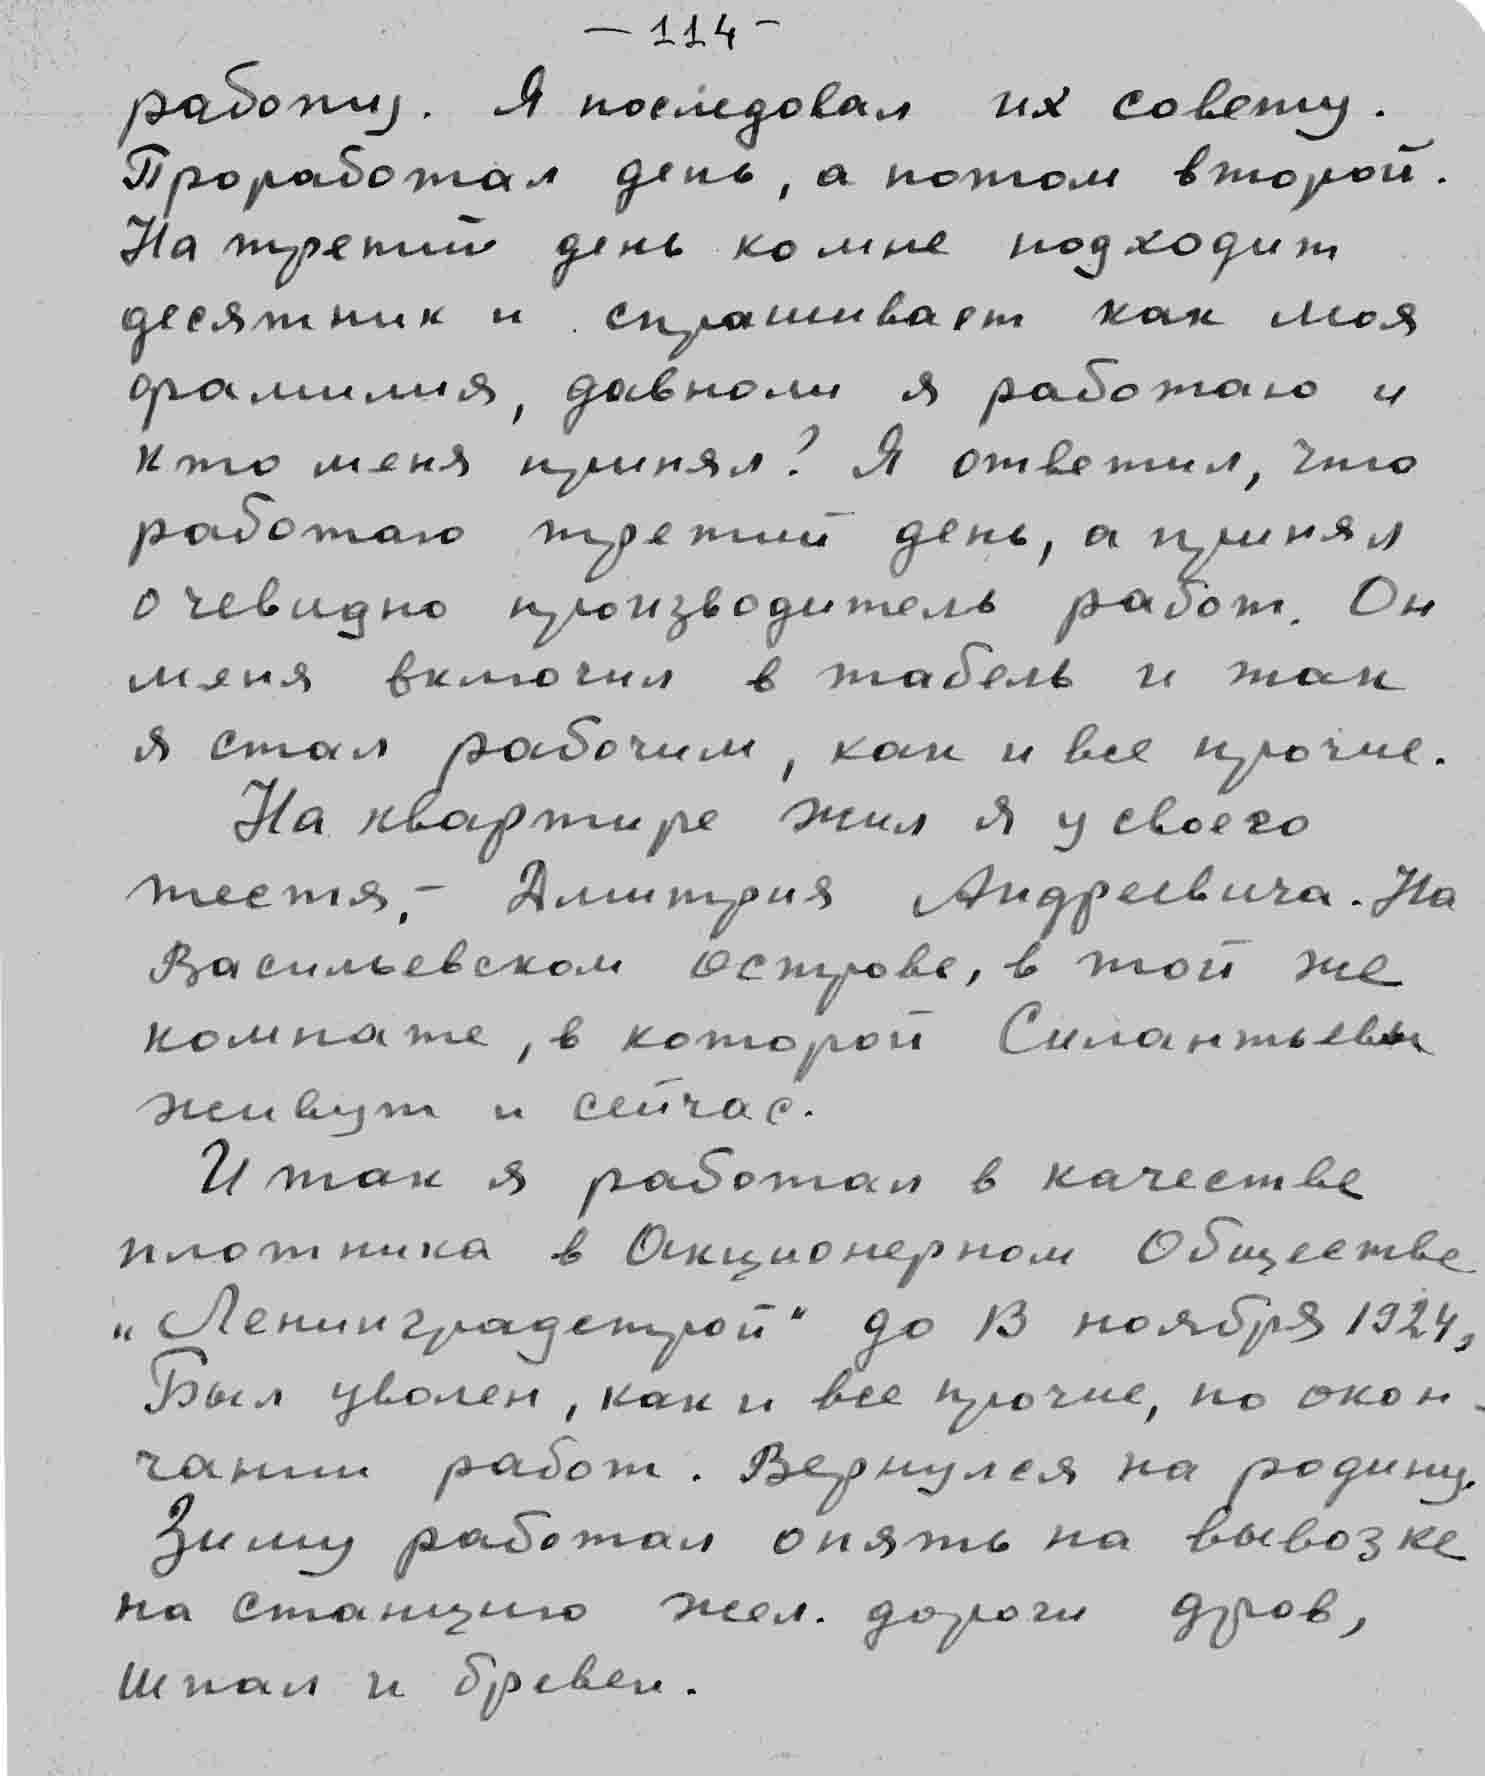 - 114 -
работу. Я последовал их совету.
Проработал день, а потом второй.
На третий день ко мне подходит
десятник и спрашивает как моя
фамилия, давноли я работаю и
кто меня принял? Я ответил, что
работаю третий день, а принял
очевидно производитель работ. Он
меня включил в табель и так
я стал рабочим, как и все прочие.
На квартире жил я у своего
тестя, - Дмитрия Андреевича. На
Васильевском острове, в той же
комнате, в которой Силантьевы
живут и сейчас.
Итак я работал в качестве
плотника в Акционерном Обществе
„Ленинградстрой“ до 13 ноября 1924,
Был уволен, как и все прочие, по окон-
чании работ. Вернулся на родину.
Зиму работал опять на вывозке
на станцию жел. дороги дров,
шпал и бревен.